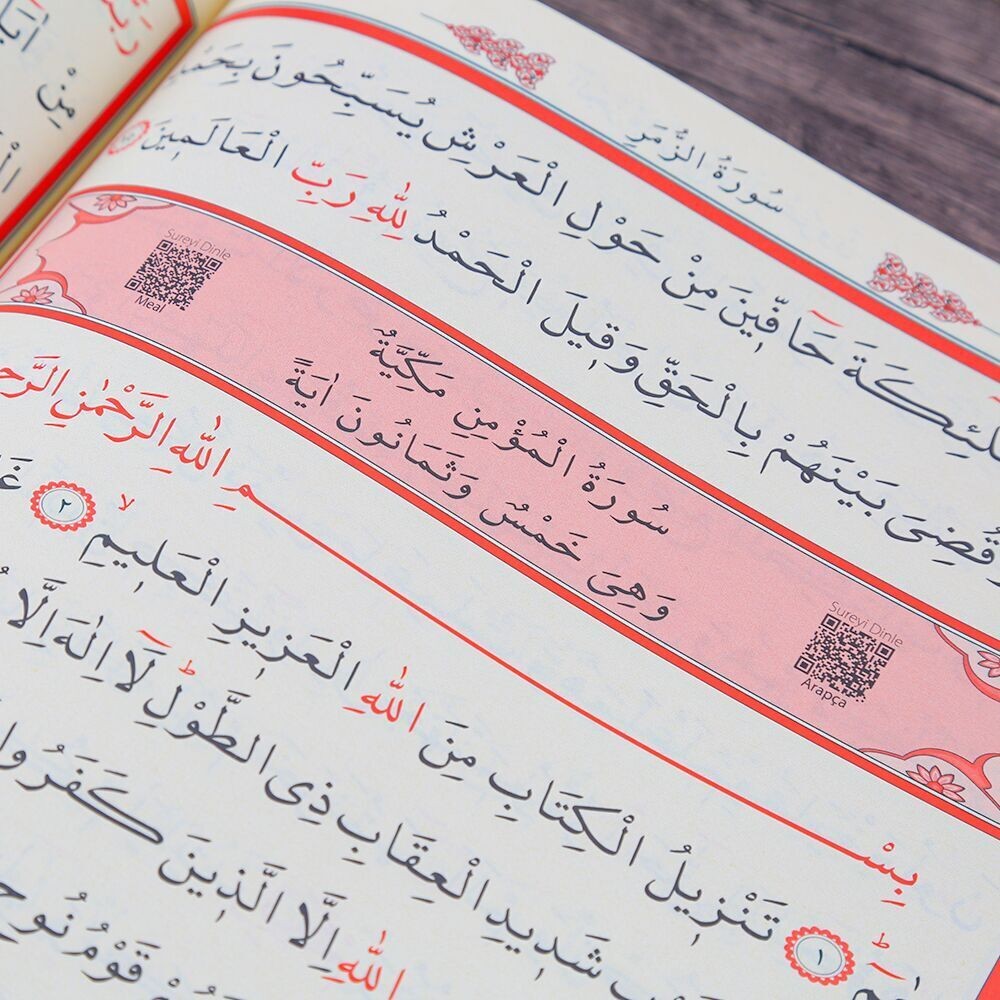 سُورَةُ الزُّمَرِ
حَآفّ۪ينَ مِنْ حَوْلِ الْعَرْشِ يُسَبِّحُونَ
وَقُضِيَ بَيْنَهُمْ بِالْحَقِّ وَق۪يلَ الْحَمْدُ لِلّٰهِ رَبِّ الْعَالَم۪ينَ
Sureyi Dinle
Meal
سُورَةُ الْمُؤْمِنِ مَكِّيَّةٌ
وَهِيَ خَمْسٌ وَثَمَانُونَ اٰيَةً
Sureyi Dinle
Arapça
بِسْمِ اللّٰهِ الرَّحْمٰنِ
١ تَنْز۪يلُ الْكِتَابِ مِنَ اللّٰهِ الْعَز۪يزِ الْعَل۪يمِ لا ٢
شَد۪يدِ الْعِقَابِ ذِي الطَّوْلِ ط لَٓا اِلٰهَ اِلَّا
اللّٰهِ اِلَّا الَّذ۪ينَ كَفَرُوا
قَوْمُ نُوحٍ